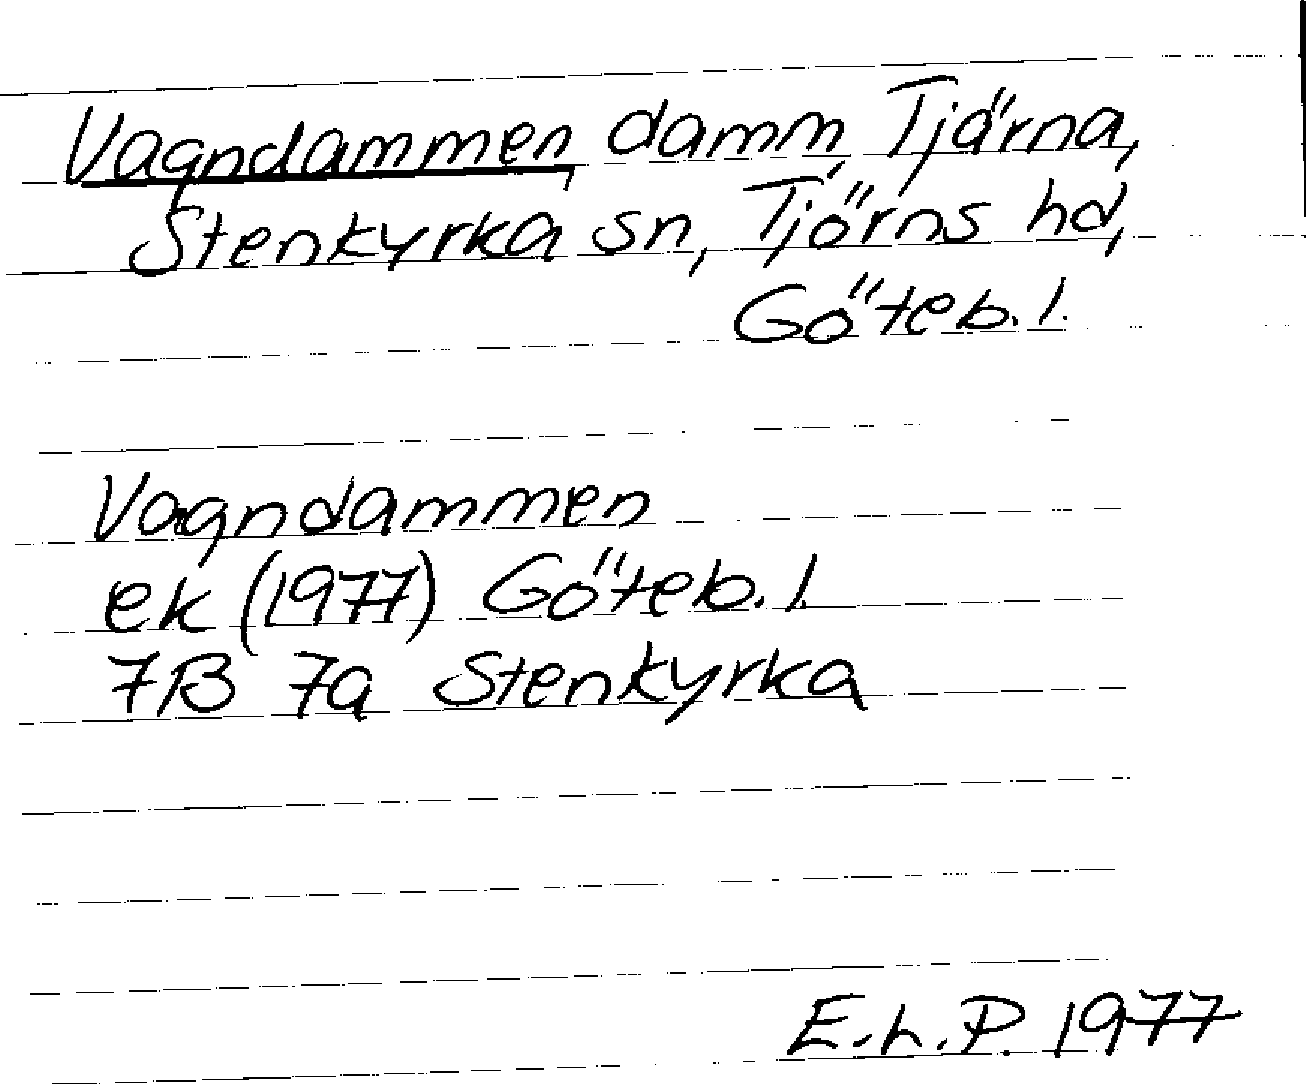 Vagndammen, damm, Tjärna,
Stenkyrka sn, Tjörns hd,
Göteb. l.
Vagndammen
ek (1977) Göteb. l.
7B 7a Stenkyrka
E.L.P. 1977